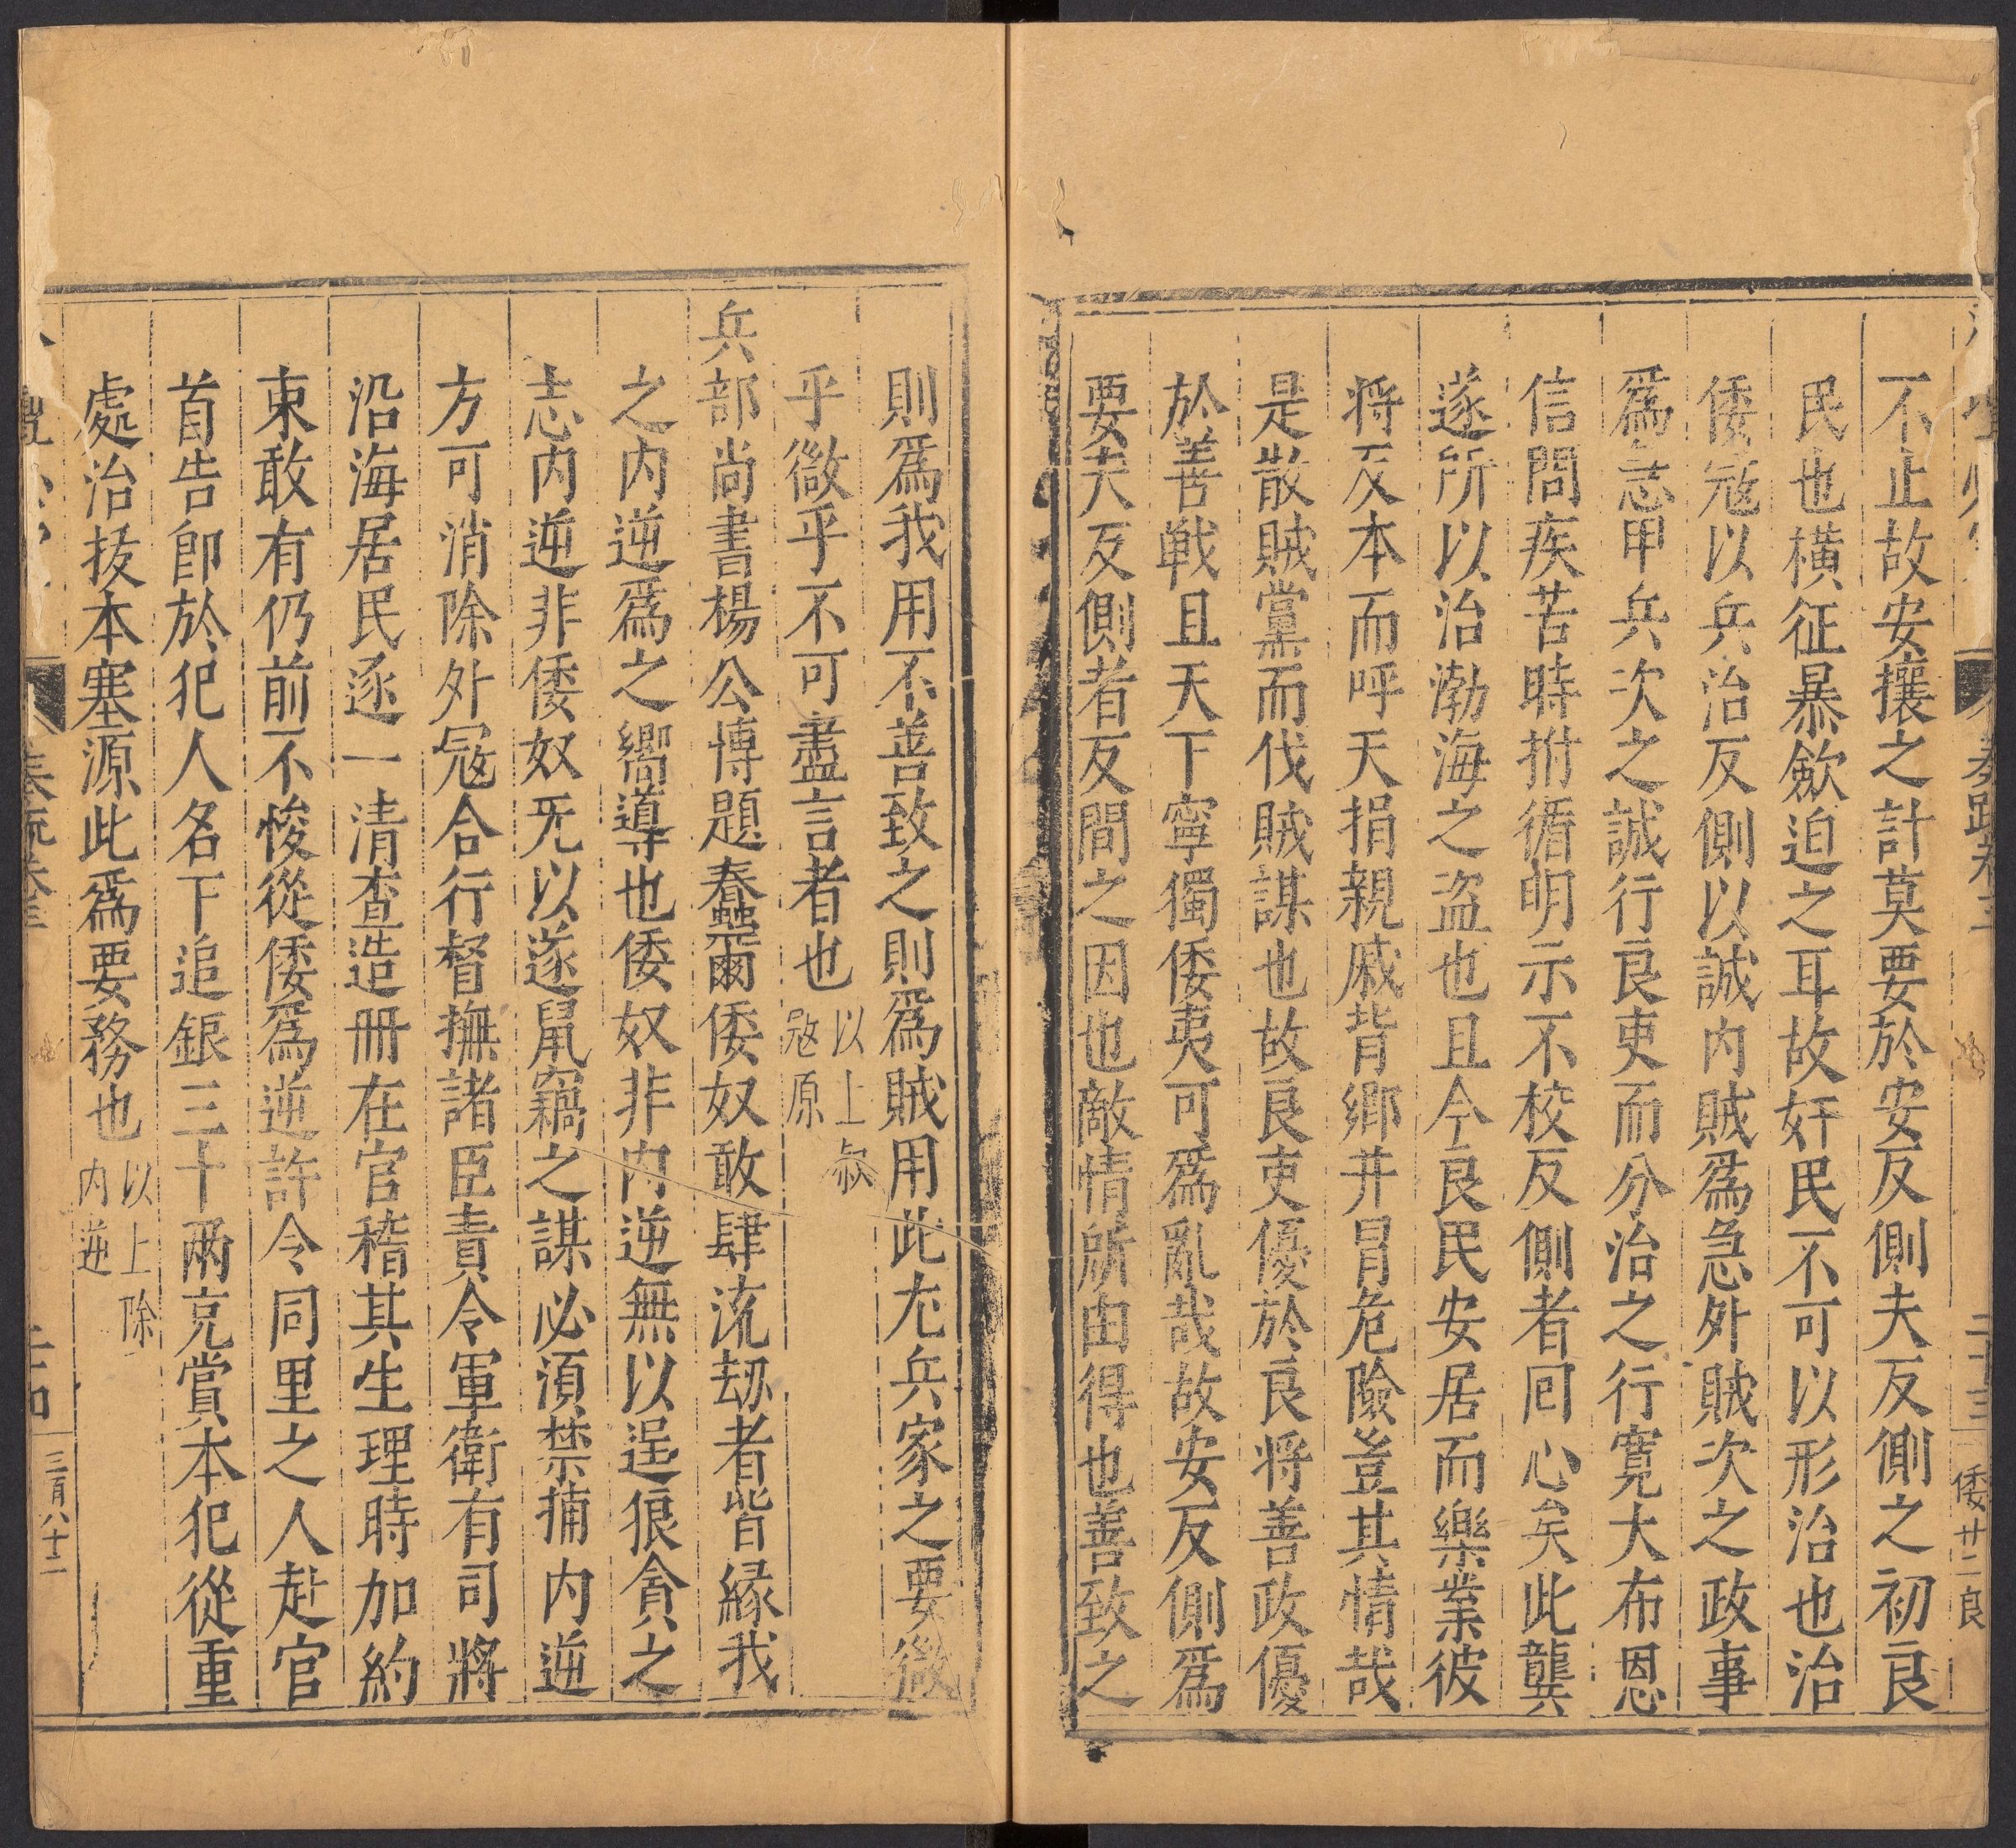 不止故安攘之計莫要於安反側夫反側之初良
民也横征暴歛迫之耳故奸民不可以形治也治
倭冦以兵治反側以誠内賊爲急外賊次之政事
爲志甲兵次之誠行良吏而分治之行寛大布恩
信問疾苦時拊循明示不校反側者囘心矣此龔
遂所以治渤海之盗也且今良民安居而樂業彼
將反本而呼天捐親戚背鄉井冐危險豈其情哉
是散賊黨而伐賊謀也故良吏優於良將善政優
於善戰且天下寧獨倭夷可爲亂哉故安反側爲
要夫反側者反間之因也敵情所由得也善致之
倭廿二良
則爲我用不善致之則爲賊用此尤兵家之要微
乎微乎不可盡言者也以上叙冦原
兵部尚書楊公博題蠢爾倭奴敢肆流刼者皆緣我
之内逆爲之嚮導也倭奴非内逆無以逞狼貪之
志内逆非倭奴旡以遂鼠竊之謀必須禁捕内逆
方可消除外冦合行督撫諸臣責令軍衛有司將
沿海居民逐一清查造册在官稽其生理時加約
束敢有仍前不悛從倭爲逆許令同里之人赴官
首告卽於犯人名下追銀三十兩充賞本犯從重
處治拔本塞源此爲要務也以上除内逆
三百八十二